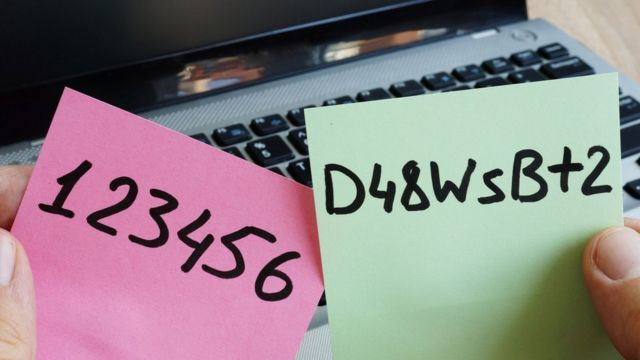 123456
D48WsBt2